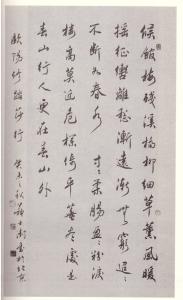 候館梅殘溪橋柳細草薰風暖
搖征轡離愁漸遠漸無窮迢迢
不斷如春水寸寸柔腸盈盈粉淚
樓高莫近危欄倚平蕪盡處是
春山行人更在春山外
歐陽修踏莎行 癸未之秋 書於北京